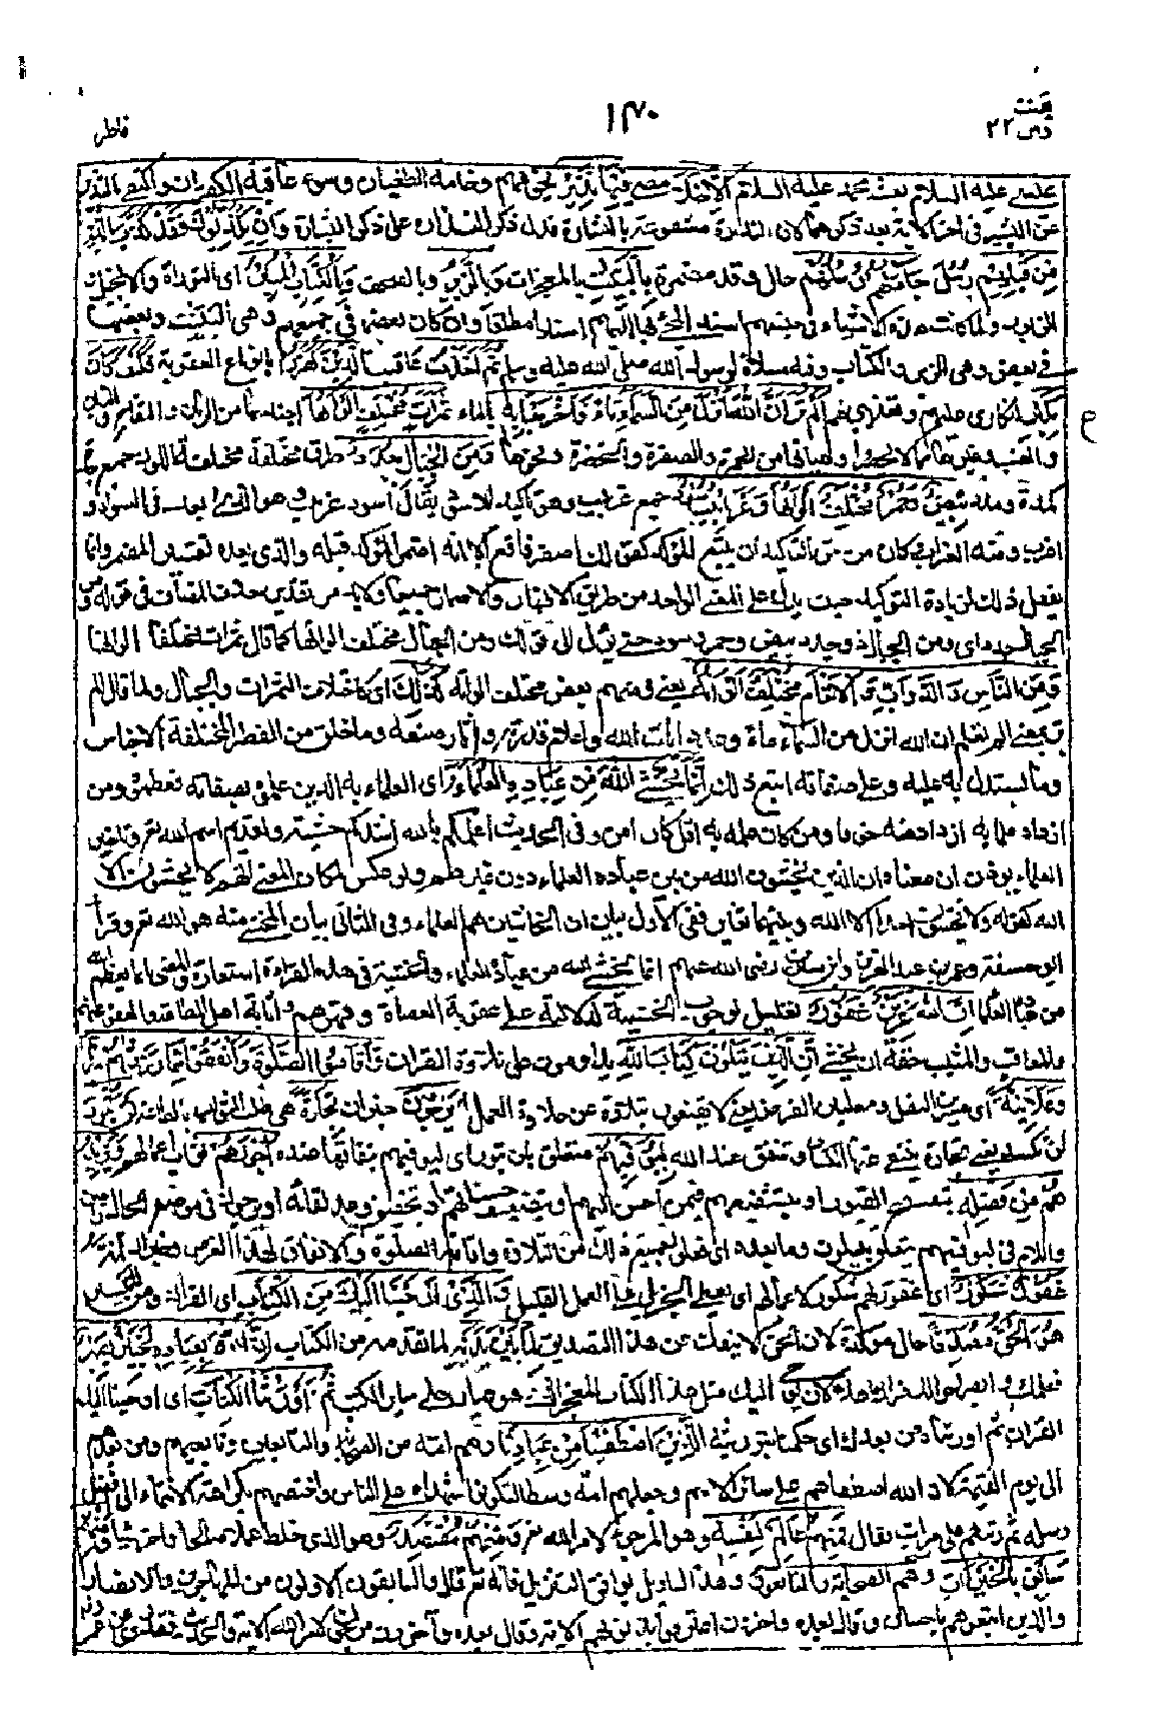 يقنت
ومن ٢٢
١٣٠
فاطر
عيسى عليه السلام بعث محمد عليه السلام إلا خلا مضى فيها نذير يخوفهم وخامة الطغيان وسوء عاقبة الكفران واكتفى بالنذير
عن البشير في آخر الآية بعد ذكرهما لأن النذارة مشفوعة بالبشارة فدل ذكر النذارة على ذكر البشارة وإن يكذبوك فقد كذب الذين
من قبلهم رسل جاءتهم رسلهم حال وقد مضمرة بالبينات بالمعجزات وبالزبر وبالصحف وبالكتاب المنير أي التوراة والإنجيل
والزبور ولما كانت هذه الأشياء في جنسهم أسند المجيء بها إليهم إسنادا مطلقا وإن كان بعضها في جميعهم وهي البينات وبعضها
في بعضهم وهي الزبر والكتاب وفيه مسلاة لرسول الله صلى الله عليه وسلم ثم أخذت عاقبت الذين كفروا بأنواع العقوبة فكيف كان
نكير إنكاري عليهم وتعذيبي لهم ألم تر أن الله أنزل من السماء ماء فأخرجنا به بالماء ثمرات مختلفا ألوانها أجناسها من الرمان والتفاح والتين
والعنب وغيرها مما لا يحصر أو هيأتها من الحمرة والصفرة والخضرة ونحوها ومن الجبال جدد طرق مختلفة اللون جمع جدة
كمدة ومدد بيض وحمر مختلف ألوانها وغرابيب سود جمع غربيب وهو تأكيد للأسود يقال أسود غربيب وهو الذي أبعد في السواد و
أغرب ومنه الغراب وكان من حق التأكيد أن يتبع المؤكد كقولك أصفر فاقع إلا أنه أضمر المؤكد قبله والذي بعده تفسير للمضمر وإنما
يفعل ذلك لزيادة التوكيد حيث يدل على المعنى الواحد من طريق الإظهار والإضمار جميعا ولا بد من تقدير حذف المضاف في قوله ومن
الجبال جدد أي ومن الجبال ذو جدد بيض وحمر وسود حتى يؤل إلى قولك ومن الجبال مختلف ألوانها كما قال ثمرات مختلفا ألوانها
ومن الناس والدواب والأنعام مختلف ألوانه يعني ومنهم بعض مختلف ألوانه كذلك أي كاختلاف الثمرات والجبال ولما قال ألم
تر بمعنى ألم تعلم أن الله أنزل من السماء ماء وعدد آيات الله وأعلام قدرته وآثار صنعته وما خلق من الفطر المختلفة الأجناس
وما يستدل به عليه وعلى صفاته أتبع ذلك إنما يخشى الله من عباده العلماء أي العلماء به الذين علموه بصفاته فعظموه ومن
ازداد علما به ازداد منه خوفا ومن كان علمه به أقل كان آمن وفي الحديث أعلمكم بالله أشدكم خشية وتقديم اسم الله تعر وتأخير
العلماء يؤذن أن معناه أن الذين يخشون الله من بين عباده العلماء دون غيرهم ولو عكس لكان المعنى أنهم لا يخشون إلا
الله كقوله ولا يخشون أحدا إلا الله وبينهما تغاير ففي الأول بيان أن الخاشين هم العلماء وفي الثاني بيان أن المخشي منه هو الله تعر وقرأ
أبو حنيفة وعمر بن عبد العزيز وابن سيرين رضي الله عنهم إنما يخشى الله من عباده العلماء والخشية في هذه القراءة استعارة والمعنى إنما يعظم الله
من عباده العلماء إن الله عزيز غفور تعليل لوجوب الخشية لدلالته على عقوبة العصاة وقهرهم وإثابة أهل الطاعة والعفو عنهم
والمعاقب والمثيب حقه أن يخشى إن الذين يتلون كتاب الله يداومون على تلاوة القرآن وأقاموا الصلوة وأنفقوا مما رزقناهم سرا
وعلانية أي مسرين النفل ومعلنين الفرض يعني لا يقنعون بتلاوته عن حلاوة العمل به يرجون خبر إن تجارة هي طلب الثواب بالطاعة لن تبور
لن تكسد يعني تجارة ينتفي عنها الكساد وتنفق عند الله ليوفيهم متعلق بلن تبور أي ليوفيهم بنفاقها عنده أجورهم ثواب أعمالهم ويزيد
هم من فضله بتفسيح القبور أو بتشفيعهم فيمن أحسن إليهم أو بتضعيف حسناتهم أو بتحقيق وعد لقائه أو يرجون في موضع الحال
واللام في ليوفيهم يتعلق بيتلون وما بعده أي فعلوا جميع ذلك من التلاوة وإقامة الصلوة والإنفاق لهذا الغرض وخبر إن إنه
غفور شكور أي غفور لهم شكور لأعمالهم أي يعطي الجزيل على العمل القليل والذي أوحينا إليك من الكتاب أي القرآن ومن للتبيين
هو الحق مصدقا حال مؤكدة لأن الحق لا ينفك عن هذا التصديق لما بين يديه لما تقدمه من الكتاب إن الله بعباده لخبير بصير
فعلمك وأبصر أحوالك فرآك أهلا لأن يوحي إليك مثل هذا الكتاب المعجز الذي هو عيار على سائر الكتب ثم أورثنا الكتاب أي أوحينا إليك
القرآن ثم أورثناه من بعدك أي حكمنا بتوريثه الذين اصطفينا من عبادنا وهم أمته من الصحابة والتابعين وتابعيهم ومن بعدهم
إلى يوم القيمة لأن الله اصطفاهم على سائر الأمم وجعلهم أمة وسطا ليكونوا شهداء على الناس واختصهم بكرامة الانتماء إلى أفضل
رسله ثم رتبهم على مراتب فقال فمنهم ظالم لنفسه وهو المرجئ لأمر الله تعر ومنهم مقتصد وهو الذي خلط عملا صالحا وآخر سيئا ومنهم
سابق بالخيرات وهم الصحابة والتابعون وهذا التأويل يوافق التنزيل فإنه تعر قال والسابقون الأولون من المهاجرين والأنصار
والذين اتبعوهم بإحسان وقال بعده وآخرون اعترفوا بذنوبهم الآية وقال بعده وآخرون مرجون لأمر الله الآية والحديث فقد روي عن عمر
ع